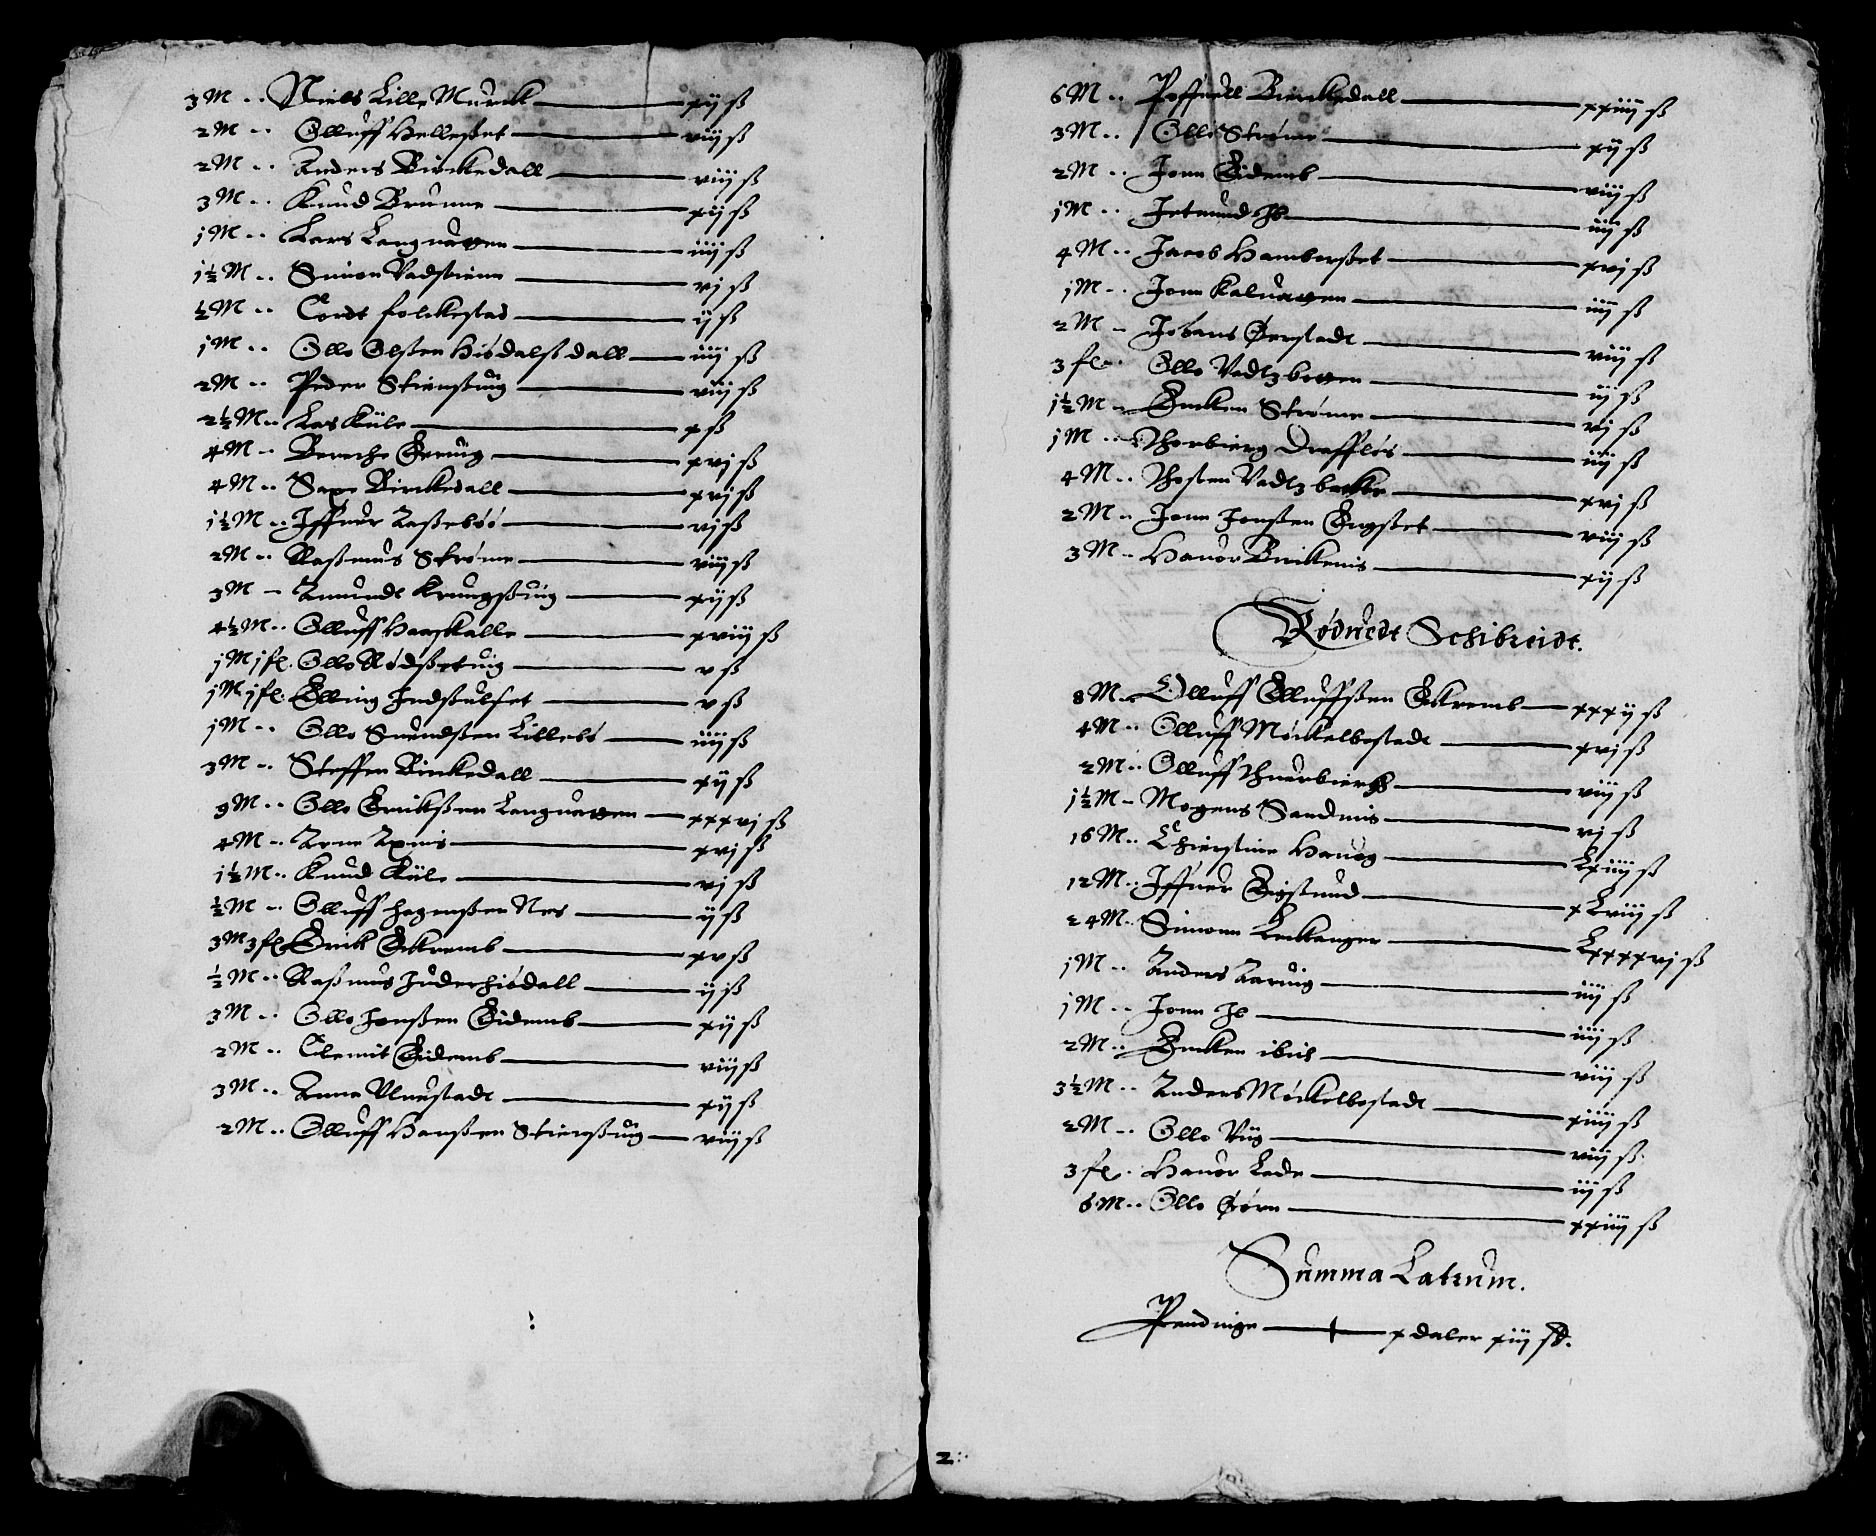 3 M .. Niels Lille Murck — xij ß
2 M .. Olluff Helleßet — viij ß
2 M .. Anders Birckedall — viij ß
3 M .. Knud Brunne — xij ß
j M .. Lars Languagen — iiij ß
j½ M .. Simon Vadstrenn — vj ß
½ M .. Cordt folckestad — ij ß
j M .. Ollo Olßen Hiòdalß dall — iiij ß
2 M .. Peder Stienßuig — viij ß
2½ M .. Las Kiile — x ß
4 M .. Berethe Greuig — xvj ß
4 M .. Saxe Birckedall — xvj ß
j½ M .. Iffuer Aaßeböö — vj ß
2 M .. Raßmus Strøme — viij ß
3 M .. Amundt Krungßuig — xij ß
4½ M .. Olluff Haaskalle — xviij ß
j M j fl. Ollo Rödßetuig — v ß
j M j fl. Elling Indßulset — v ß
j M .. Ollo Suendßen Lillebö — iiij ß
3 M .. Steffen Birckedall — xij ß
9 M .. Ollo Erickßen Languagen — xxxvj ß
4 M .. Arne Axnis — xvj ß
j½ M .. Knud Kiile — vj ß
½ M .. Olluff hagenßen Nes — ij ß
3 M 3 fl. Erick Eckremb — xv ß
½ M .. Raßmus Inderhiödall — ij ß
3 M .. Ollo honßen Eidemb — xij ß
2 M .. Clemit Eidemb — viij ß
3 M .. Anne Vluestadt — xij ß
2 M .. Olluff Hanßen Stienßuig — viij ß
6 M .. Poffuell Birckedall — xxiiij ß
3 M .. Ollo Strøme — xij ß
2 M .. Jonn Eidemb — viij ß
j M .. Jetmund Ib — iiij ß
4 M .. Jacob Hamberßet — xvj ß
j M .. Jonn Kaluagen — iiij ß
2 M .. Johans Ørstadt — viij ß
3 fl .. Ollo Vadtzbogen — iij ß
j½ M .. Encken Strøme — vj ß
j M .. Thorbiørg Draffløs — iiij ß
4 M .. Thosten Vadtz backe — xvj ß
2 M .. Jonn Jonßen Engßet — viij ß
3 M .. Hauor Birckenis — xij ß
Röduedt Schibreidt.
8 M .. Olluff Olluffßen Eckremb — xxxij ß
4 M .. Olluff Möckelbostadt — xvj ß
2 M .. Olluff Thuerbierg — viij ß
j½ M .. Mogens Sandnis — vj ß
16 M .. Chierstine Haueg — Lxiiij ß
12 M .. Iffuer Eigßund — xLviij ß
24 M .. Simonn Leckanger — Lxxxxvj ß
j M .. Anders Aaruig — iiij ß
j M .. Jonn Ib — iiij ß
2 M .. Encken ibid — viij ß
3½ M .. Anders Möckelbostadt — xiiij ß
2 M .. Ollo Viig — viij ß
3 fl . Hauor Lade — iij ß
6 M .. Ollo Ørörn — xxiiij ß
Summa Latrum.
Pendinge — x daler xiij ß.
2